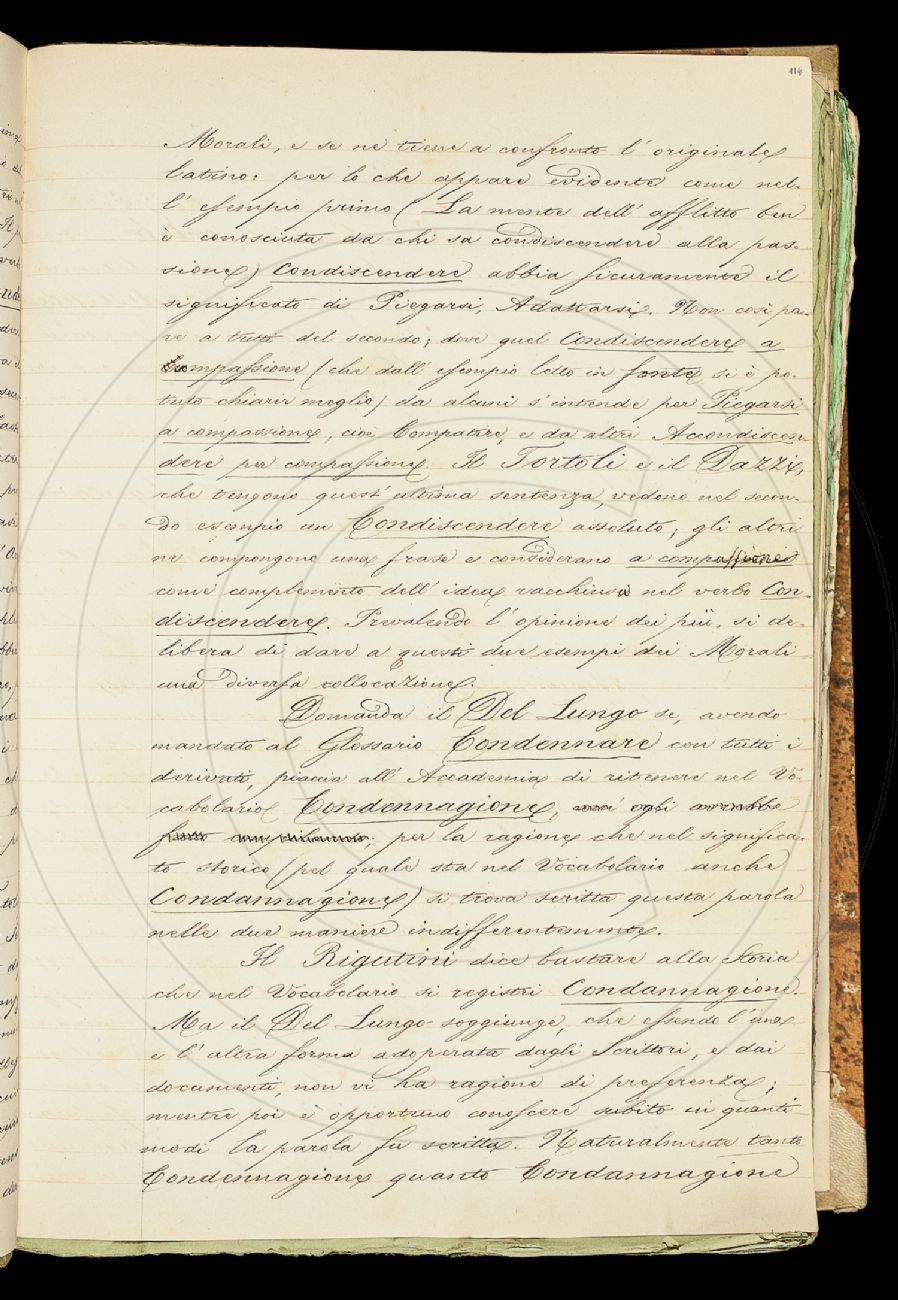 114
Morali, e se ne tiene a confronto l'originale
latino: per lo che appare evidente come nel-
l'esempio primo (La mente dell'afflitto ben
è conosciuta da chi sa condiscendere alla pas-
sione) Condiscendere abbia sicuramente il
significato di Piegarsi, Adattarsi. Non così pa-
re a tutti del secondo; dove quel Condiscendere a
compassione (che dall'esempio letto in fonte si è po-
tuto chiarir meglio) da alcuni s'intende per Piegarsi
a compassione, cioè Compatire, e da altri Accondiscen-
dere per compassione. Il Tortoli e il Dazzi,
che tengono quest'ultima sentenza, vedono nel secon-
do esempio un Condiscendere assoluto; gli altri
ne compongono una frase e considerano a compassione
come complemento dell'idea racchiusa nel verbo Con-
discendere. Prevalendo l'opinione dei più, si de-
libera di dare a questi due esempi dei Morali
una diversa collocazione.
Domanda il Del Lungo se, avendo
mandato al Glossario Condennare con tutti i
derivati, piaccia all'Accademia di ritenere nel Vo-
cabolario Condennagione,
per la ragione che nel significa-
to storico (pel quale sta nel Vocabolario anche
Condannagione) si trova scritta questa parola
nelle due maniere indifferentemente.
Il Rigutini dice bastare alla Storia
che nel Vocabolario si registri Condannagione.
Ma il Del Lungo soggiunge, che essendo l'una
e l'altra forma adoperata dagli Scrittori, e dai
documenti, non vi ha ragione di preferenza;
mentre poi è opportuno conoscere subito in quanti
modi la parola fu scritta. Naturalmente tanto
Condennagione quanto Condannagione